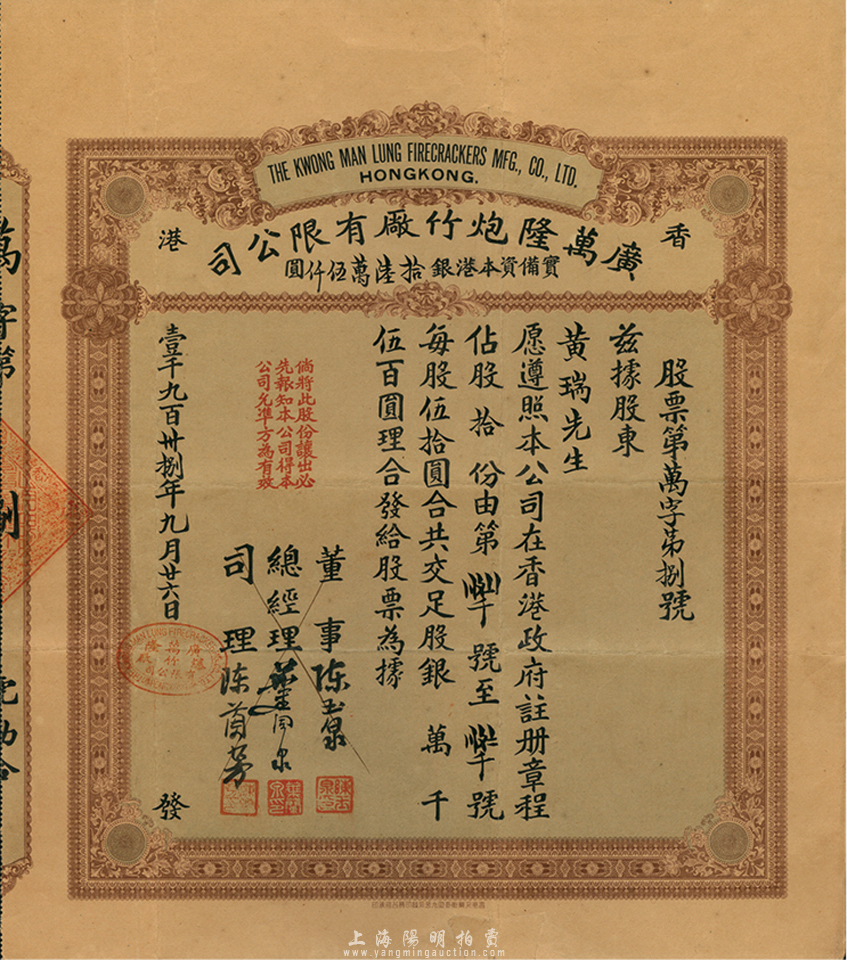 THE KWONG MAN LUNG FIRECRACKERS MFG., CO., LTD.
HONGKONG.
香港
廣萬隆炮竹廠有限公司
實備資本港銀拾陸萬伍仟圓
股票第萬字第捌號
茲據股東
黃瑞先生
愿遵照本公司在香港政府註册章程
佔股拾份由第 號至 號
每股伍拾圓合共交足股銀 萬 千
伍百圓理合發給股票為據
倘將此股份讓出必
先報知本公司得本
公司允準方為有效
董事 陈玉泉
總經理
司理 陈蘭芳
壹千九百卅捌年九月廿六日 發
萬字第捌號
上海陽明拍賣
www.yangmingauction.com